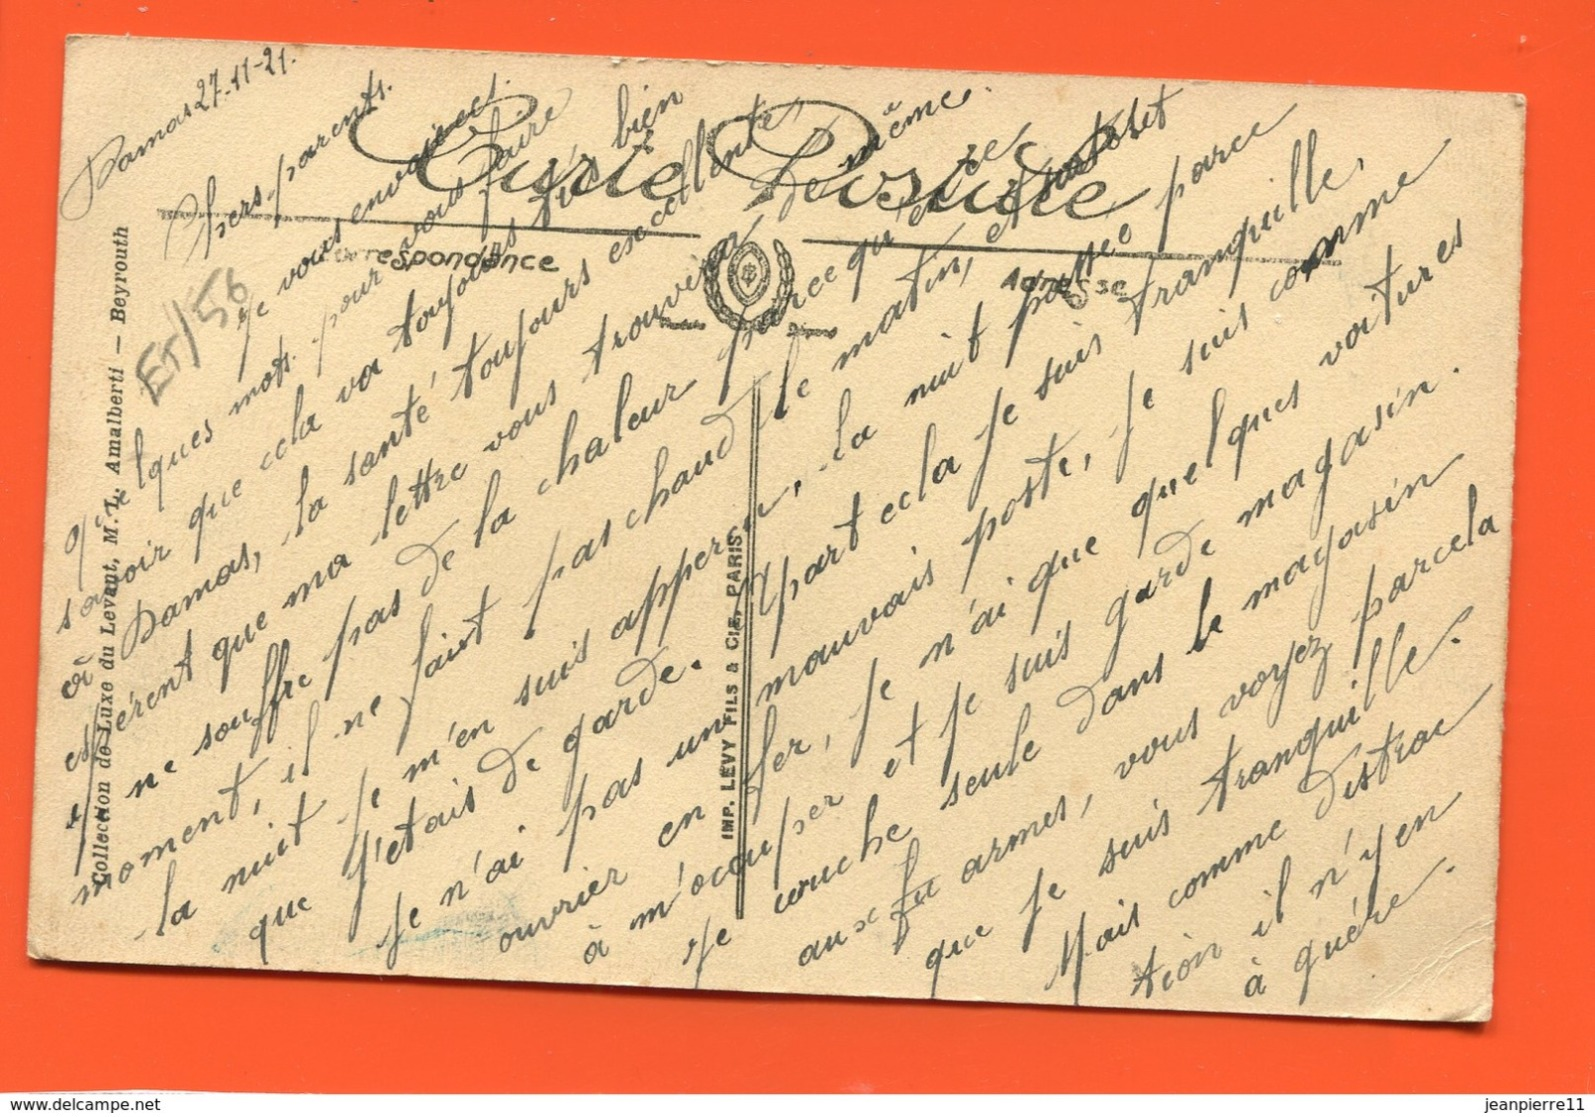 Damas 27-11-21.
Chers parents.
Je vous envoie ces
quelques mots pour vous faire
savoir que cela va toujours très bien
à Damas, la santé toujours excellente,
espérent que ma lettre vous trouvera de même.
Je ne souffre pas de la chaleur parce qu'en ce
moment, il ne faint pas chaud le matin, et surtout
la nuit je m'en suis apperçu, la nuit passée parce
que j'étais de garde. Apart cela je suis tranquille,
je n'ai pas un mauvais poste, je suis comme
ouvrier en fer, je n'ai que quelques voitures
à m'occuper et je suis garde magasin.
Je couche seule dans le magasin
aux armes, vous voyez parcela
que je suis tranquille.
Mais comme distrac
tion il n'y en
à guére.
Et/56
Carte Postale
Correspondance
Adresse
Collection de Luxe du Levant, M. L. Amalberti — Beyrouth
IMP. LEVY FILS & CIE, PARIS
www.delcampe.net
jeanpierre11